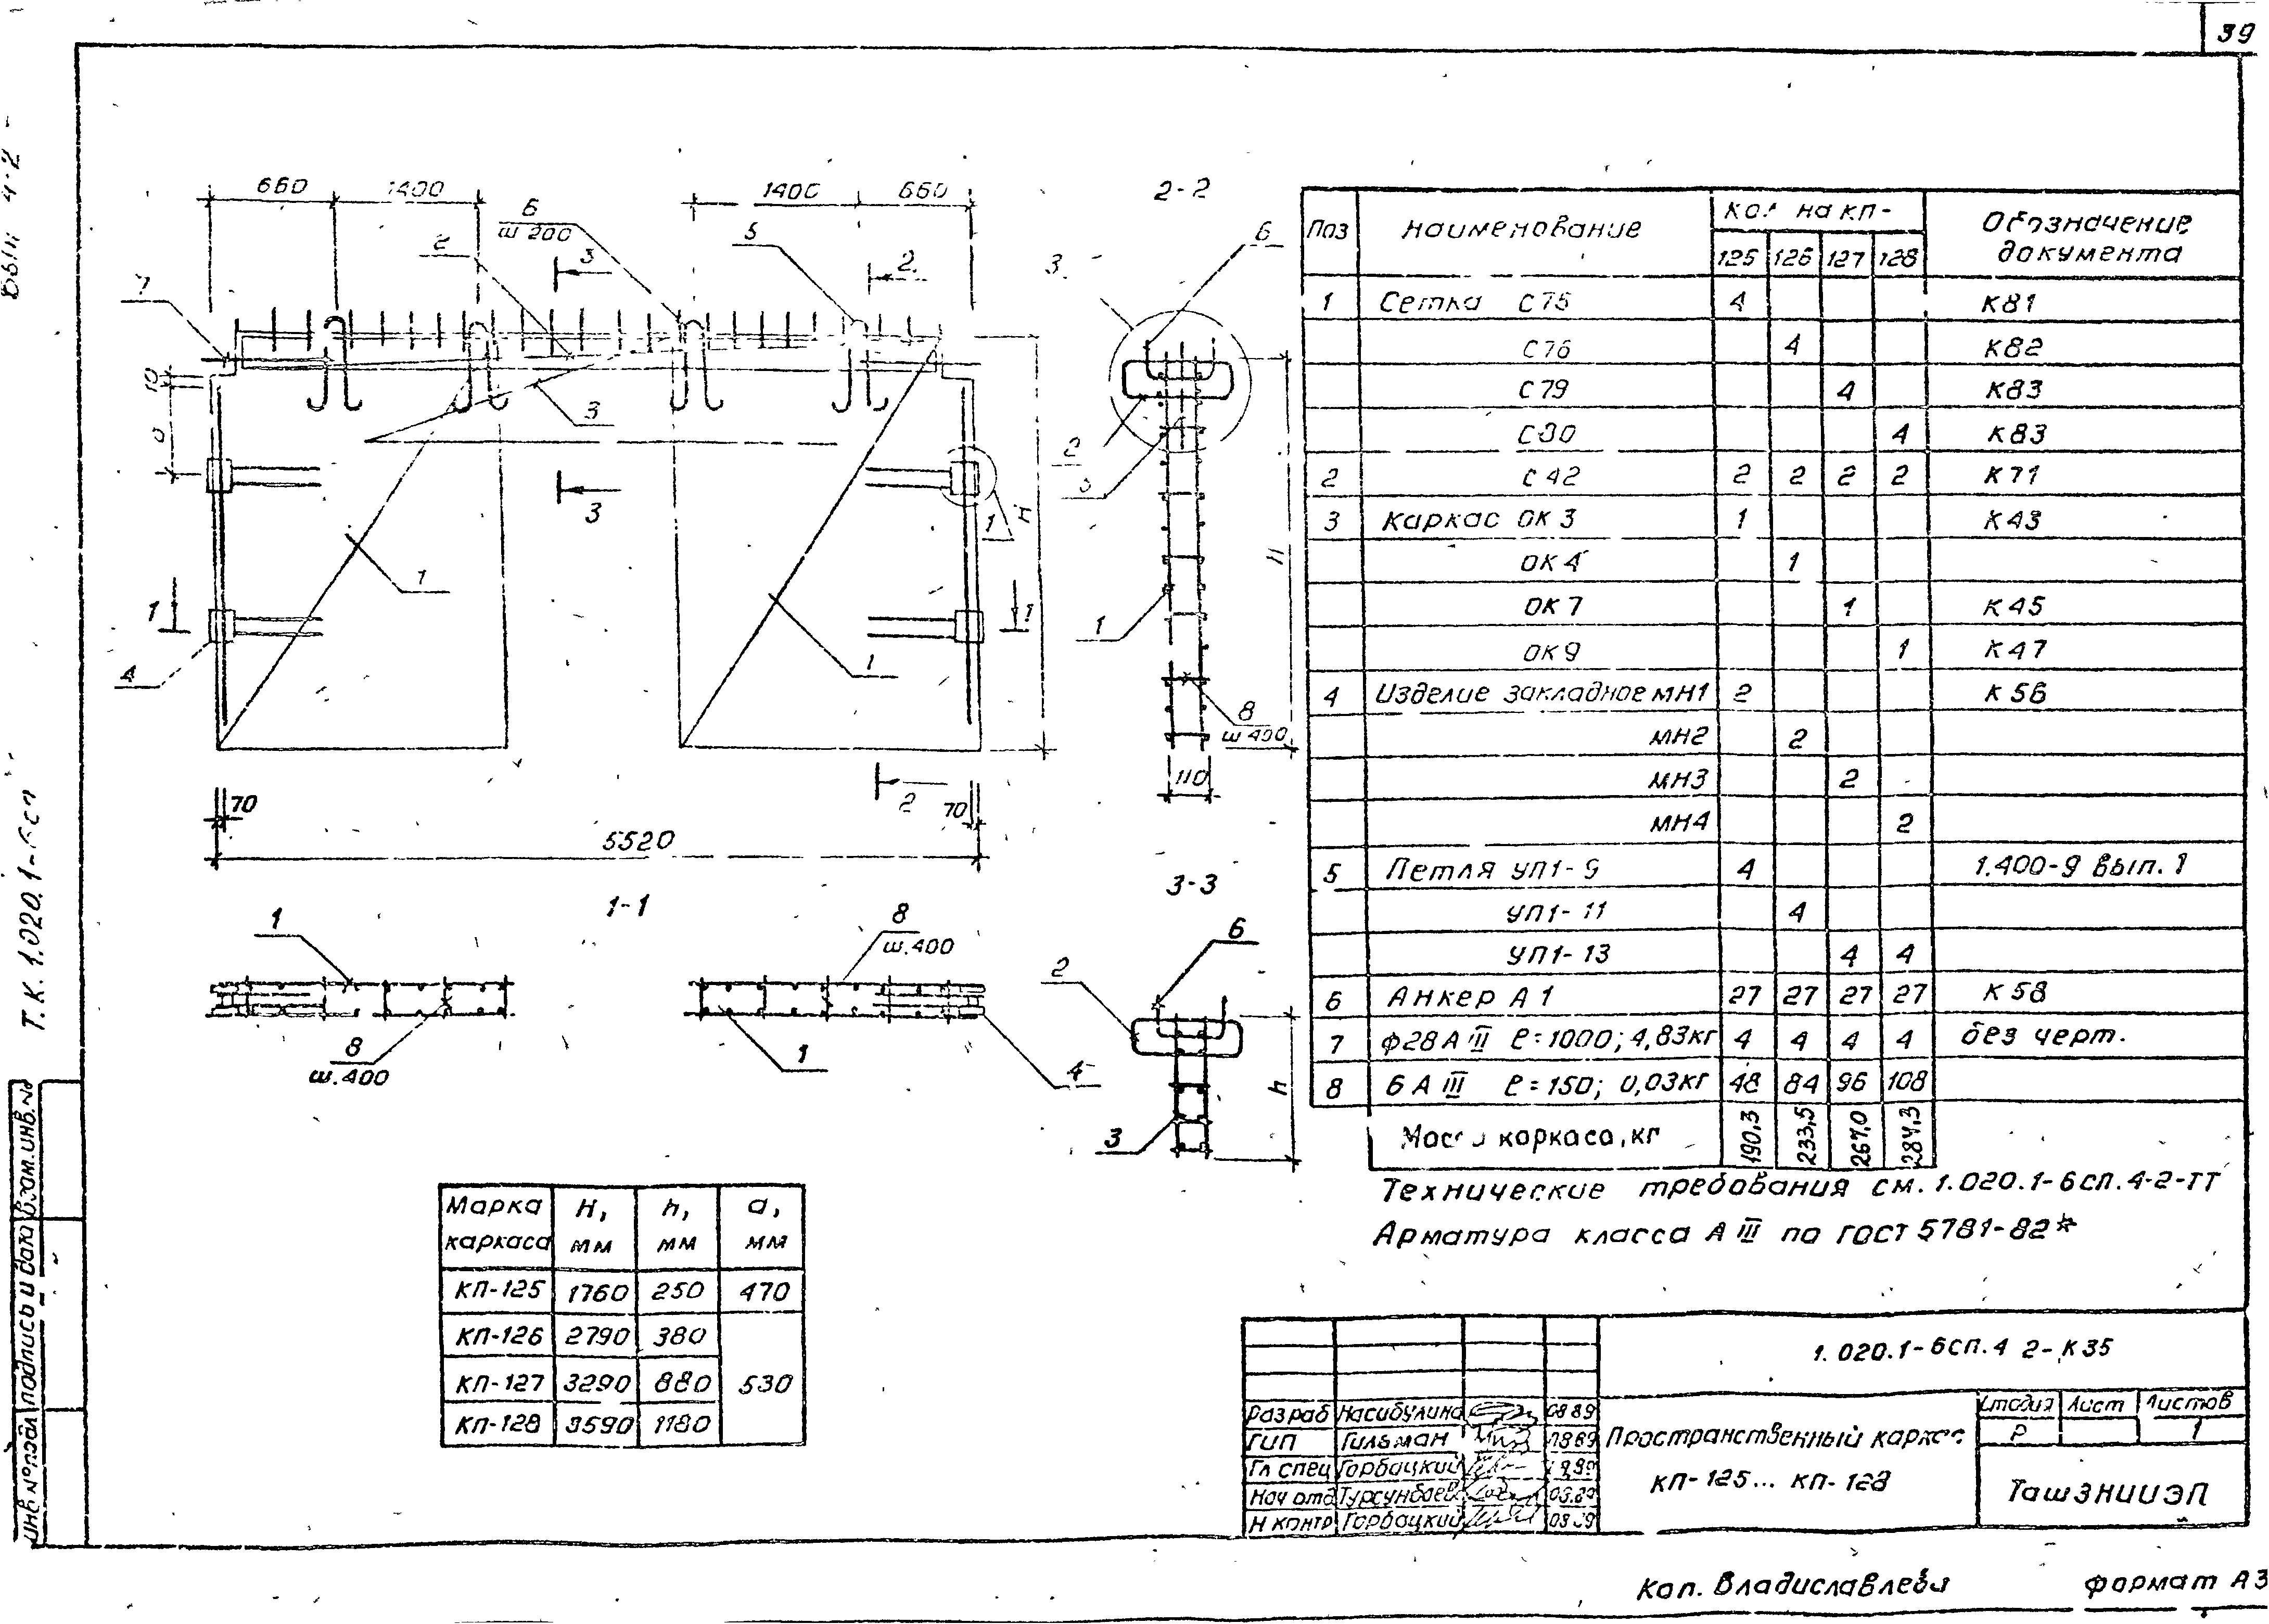 39
660
1400
1400
660
6
ш 200
2
5
3
2
7
10
3
3
1
1
1
1
1
4
Н
70
70
2
5520
2-2
6
3
2
1
8
ш 400
110
Н
1-1
1
8
ш.400
8
ш.400
1
4
3-3
6
2
3
h
Поз Наименование Кол на КП- Обозначение документа
125 126 127 128
1 Сетка С75 4 К81
С76 4 К82
С79 4 К83
С80 4 К83
2 С42 2 2 2 2 К71
3 Каркас ОК3 1 К43
ОК4 1
ОК7 1 К45
ОК9 1 К47
4 Изделие закладное МН1 2 К56
МН2 2
МН3 2
МН4 2
5 Петля УП1-9 4 1.400-9 вып.1
УП1-11 4
УП1-13 4 4
6 Анкер А1 27 27 27 27 К58
7 ф28АIII ℓ=1000; 4,83кг 4 4 4 4 без черт.
8 6АIII ℓ=150; 0,03кг 48 84 96 108
каркаса, кг 190,3 233,5 267,0 287,3
Технические требования см. 1.020.1-6сп.4-2-ТТ
Арматура класса АIII по ГОСТ 5781-82*
Марка каркаса Н, мм h, мм а, мм
КП-125 1760 250 470
КП-126 2790 380
КП-127 3290 880 530
КП-128 3590 1180
1.020.1-6СП.4 2-К35
Разраб Насибулина 08 89
ГИП Гильман
Гл спец Горбацкий
Нач отд
Н контр Горбацкий
Пространственный каркас
КП-125... КП-128
Стадия Лист Листов
Р 1
ТашЗНИИЭП
Т.К. 1.020.1-6сп
Вып 4-2
Инв № подл Подпись и дата Взам.инв.№
Коп. Владиславлева
формат А3